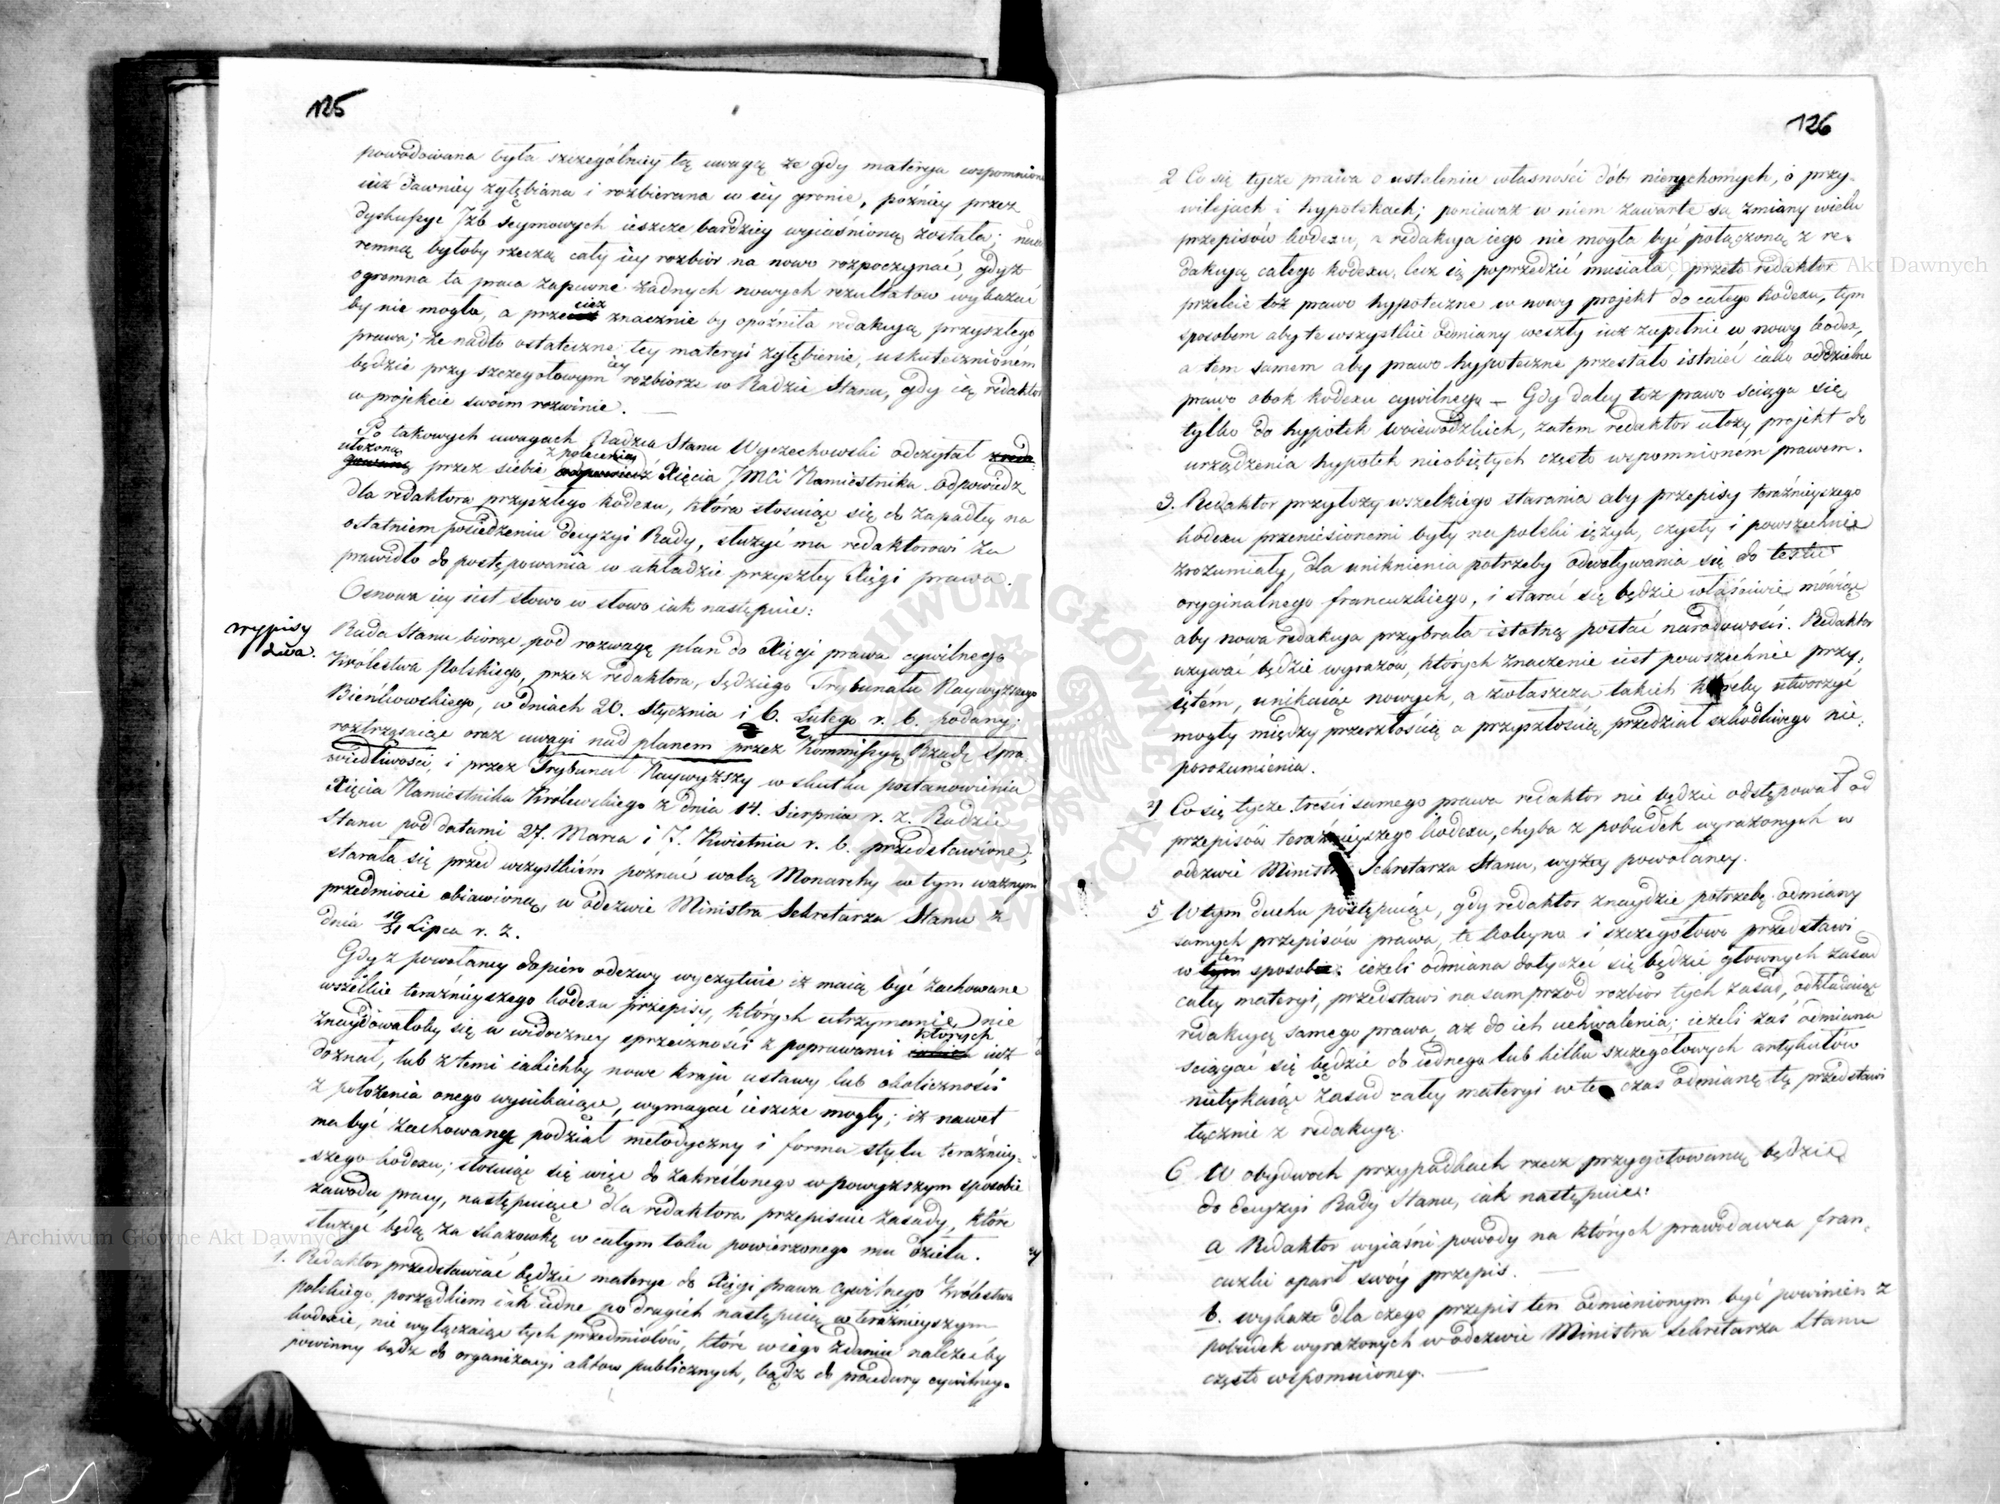 125
powodowana była szczególniey tą uwagą że gdy materya wspomniona
iuż dawniey zgłębiana i rozbierana w iey gronie, późniey przez
dyskussye Izb seymowych ieszcze bardziey wyiaśnioną została;
remną byłoby rzeczą cały iey rozbiór na nowo rozpoczynać, gdyż
ogromna ta praca zapewne żadnych nowych rezultatów wykazać
by nie mogła, a przecież znacznie by opóźniła redakcyą przyszłego
prawa; że nadto ostateczne tey materyi zgłębienie, uskutecznioném
będzie przy szczegółowym iey rozbiorze w Radzie Stanu, gdy ią redaktor
w projekcie swoim rozwinie. —
Po takowych uwagach Radzca Stanu Wyczechowski odczytał
ułożoną przez siebie z polecenia Xięcia JMCi Namiestnika odpowiedz
dla redaktora przyszłego kodexu, która stosuiąc się do zapadłey na
ostatniem posiedzeniu decyzyi Rady, służyć ma redaktorowi za
prawidło do postępowania w układzie przyszłey Xięgi prawa.
Osnowa iey iest słowo w słowo iak następuie:
wypisy
dwa.
Rada Stanu biorąc pod rozwagę plan do Xięgi prawa cywilnego
Królestwa Polskiego, przez redaktora, Sędziego Trybunału Naywyższego
Bieńkowskiego, w dniach 20. Stycznia i 6. Lutego r. b. podany;
roztrząsaiąc oraz uwagi nad planem przez Kommissyą Rządą Spra-
wiedliwości, i przez Trybunał Naywyższy w skutku postanowienia
Xięcia Namiestnika Królewskiego z dnia 14. Sierpnia r. z. Radzie
Stanu pod datami 27. Marca i 7. Kwietnia r. b. przedstawione,
starała się przed wszystkiém poznać wolą Monarchy w tym ważnym
przedmiocie obiawioną, w odezwie Ministra Sekretarza Stanu z
dnia 19/31 Lipca r. z.
Gdy z powołaney dopiero odezwy wyczytuie iż maią być zachowane
wszelkie teraźnieyszego kodexu przepisy, których utrzymanie nie
znaydowałoby się w widoczney sprzeczności z poprawami których iuż
doznał, lub z temi iakichby nowe kraju ustawy lub okoliczności
z położenia onego wynikaiące, wymagać ieszcze mogły; iż nawet
ma być zachowany podział metodyczny i forma stylu teraźniey-
szego kodexu; stosuiąc się więc do zakreślonego w powyższym sposobie
zawodu pracy, następuiące dla redaktora przepisuie zasady, które
służyć będą za skazówkę w całym toku powierzonego mu dzieła.
1. Redaktor przedstawiać będzie materye do Xięgi prawa cywilnego Królestwa
polskiego, porządkiem iak iedne po drugich następuią w teraźnieyszym
kodexie, nie wyłączaiąc tych przedmiotów, które w iego zdaniu należećby
powinny bądź do organizacyi aktow publicznych, bądź do procedury cywilney.
126
2 Co się tycze prawa o ustaleniu własności dóbr nieruchomych, o przy-
wilejach i hypotekach; ponieważ w niem zawarte są zmiany wielu
przepisów kodexu, a redakcya iego nie mogła być połączoną z re-
dakcyą całego kodexu, lecz ią poprzedzić musiała, przeto redaktor
przeleie toż prawo hypoteczne w nowy projekt do całego kodexu, tym
sposobem aby te wszystkie odmiany weszły iuż zupełnie w nowy kodex,
a tem samem aby prawo hypoteczne przestało istnieć iako oddzielne
prawo obok kodexu cywilnego — Gdy daley toż prawo sciąga się
tylko do hypotek woiewodzkich, zatem redaktor ułoży projekt do
urządzenia hypotek nieobiętych często wspomnionem prawem.
3. Redaktor przyłoży wszelkiego starania aby przepisy teraźnieyszego
kodexu przeniesionemi były na polski ięzyk, czysty i powszechnie
zrozumiały, dla uniknienia potrzeby odwoływania się do textu
oryginalnego francuzkiego, i starać się będzie właściwie mówiąc
aby nowa redakcya przybrała istotną postać narodowości. Redaktor
używać będzie wyrazów, których znaczenie iest powszechnie przy-
iętém, unikaiąc nowych, a zwłaszcza takich któreby utworzyć
mogły między przeszłością a przyszłością przedział szkodliwego nie-
porozumienia.
4 Co się tycze treści samego prawa redaktor nie będzie odstępował od
przepisów teraźnieyszego kodexu, chyba z pobudek wyrażonych w
odezwie Ministra Sekretarza Stanu, wyżey powołaney.
5 W tym duchu postępuiąc, gdy redaktor znaydzie potrzebę odmiany
samych przepisów prawa, te koleyno i szczegółowo przedstawi
w ten sposób: ieżeli odmiana dotyczeć się będzie głównych zasad
całey materyi, przedstawi na samprzód rozbiór tych zasad, odkładaiąc
redakcyą samego prawa, aż do ich uchwalenia; ieżeli zaś odmiana
sciągać się będzie do iednego lub kilku szczegółowych artykułów
nietykaiąc zasad całey materyi w ten czas odmianę tę przedstawi
łącznie z redakcyą.
6 W obydwoch przypadkach rzecz przygotowaną będzie
do decyzyi Rady Stanu, iak następuie:
a Redaktor wyiaśni powody na których prawodawca fran-
cuzki oparł swóy przepis. —
b. wykaże dla czego przepis ten odmienionym być powinien z
pobudek wyrażonych w odezwie Ministra Sekretarza Stanu
często wspomnioney. —
Archiwum Główne Akt Dawnych